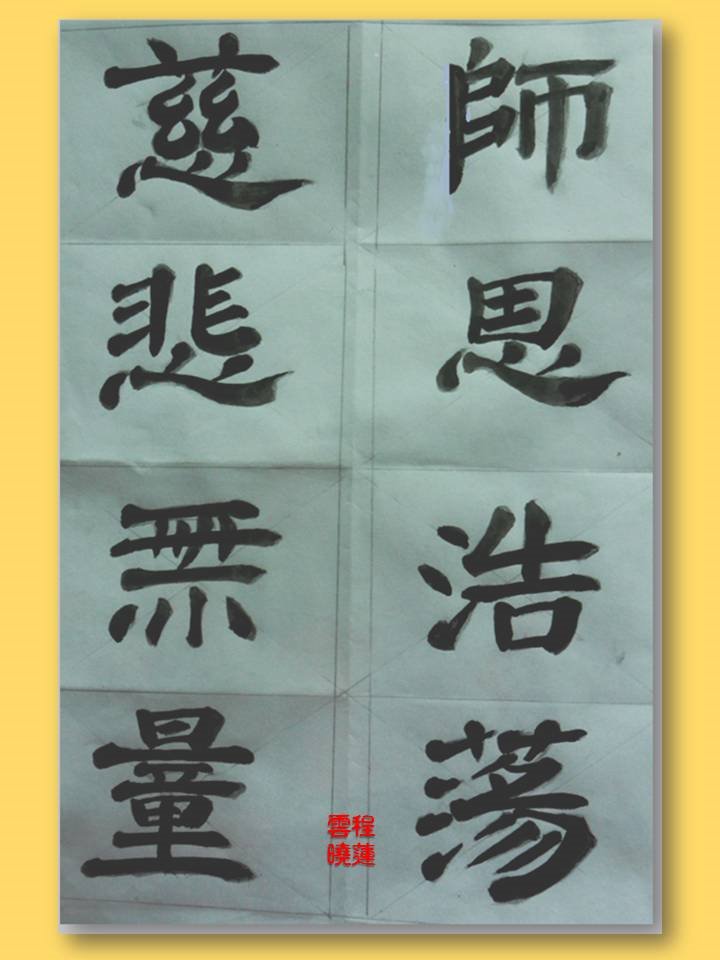 師恩浩蕩
慈悲無量
雲程
曉蓮